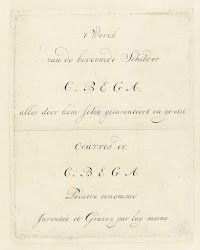 't Werck
van de beroemde Schilder
C. BEGA,
alles door hem selve geinventeert en geetst.
Oeuvres de
C. BEGA
Peintre renommé
Inventée et Gravez par luy-mesme